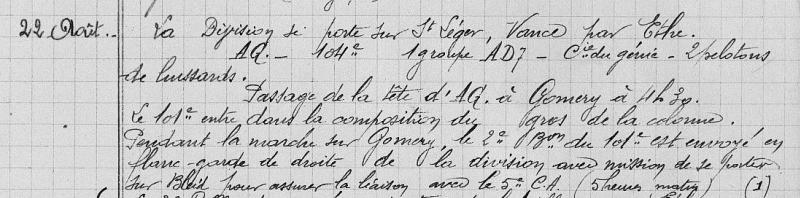 22 Août.. La Division se porte sur St Léger, Vance par Ethe.
AG. - 104e 1 groupe AD7 - Cie du génie - 2 pelotons
de hussards.
Passage de la tête d'AG. à Gomery à 4h30.
Le 101e entre dans la composition du gros de la colonne.
Pendant la marche sur Gomery, le 2e Bon du 101e est envoyé en
flanc-garde de droite de la division avec mission de se porter
sur Bleid pour assurer la liaison avec le 5e C.A. (5 heures matin) (1)